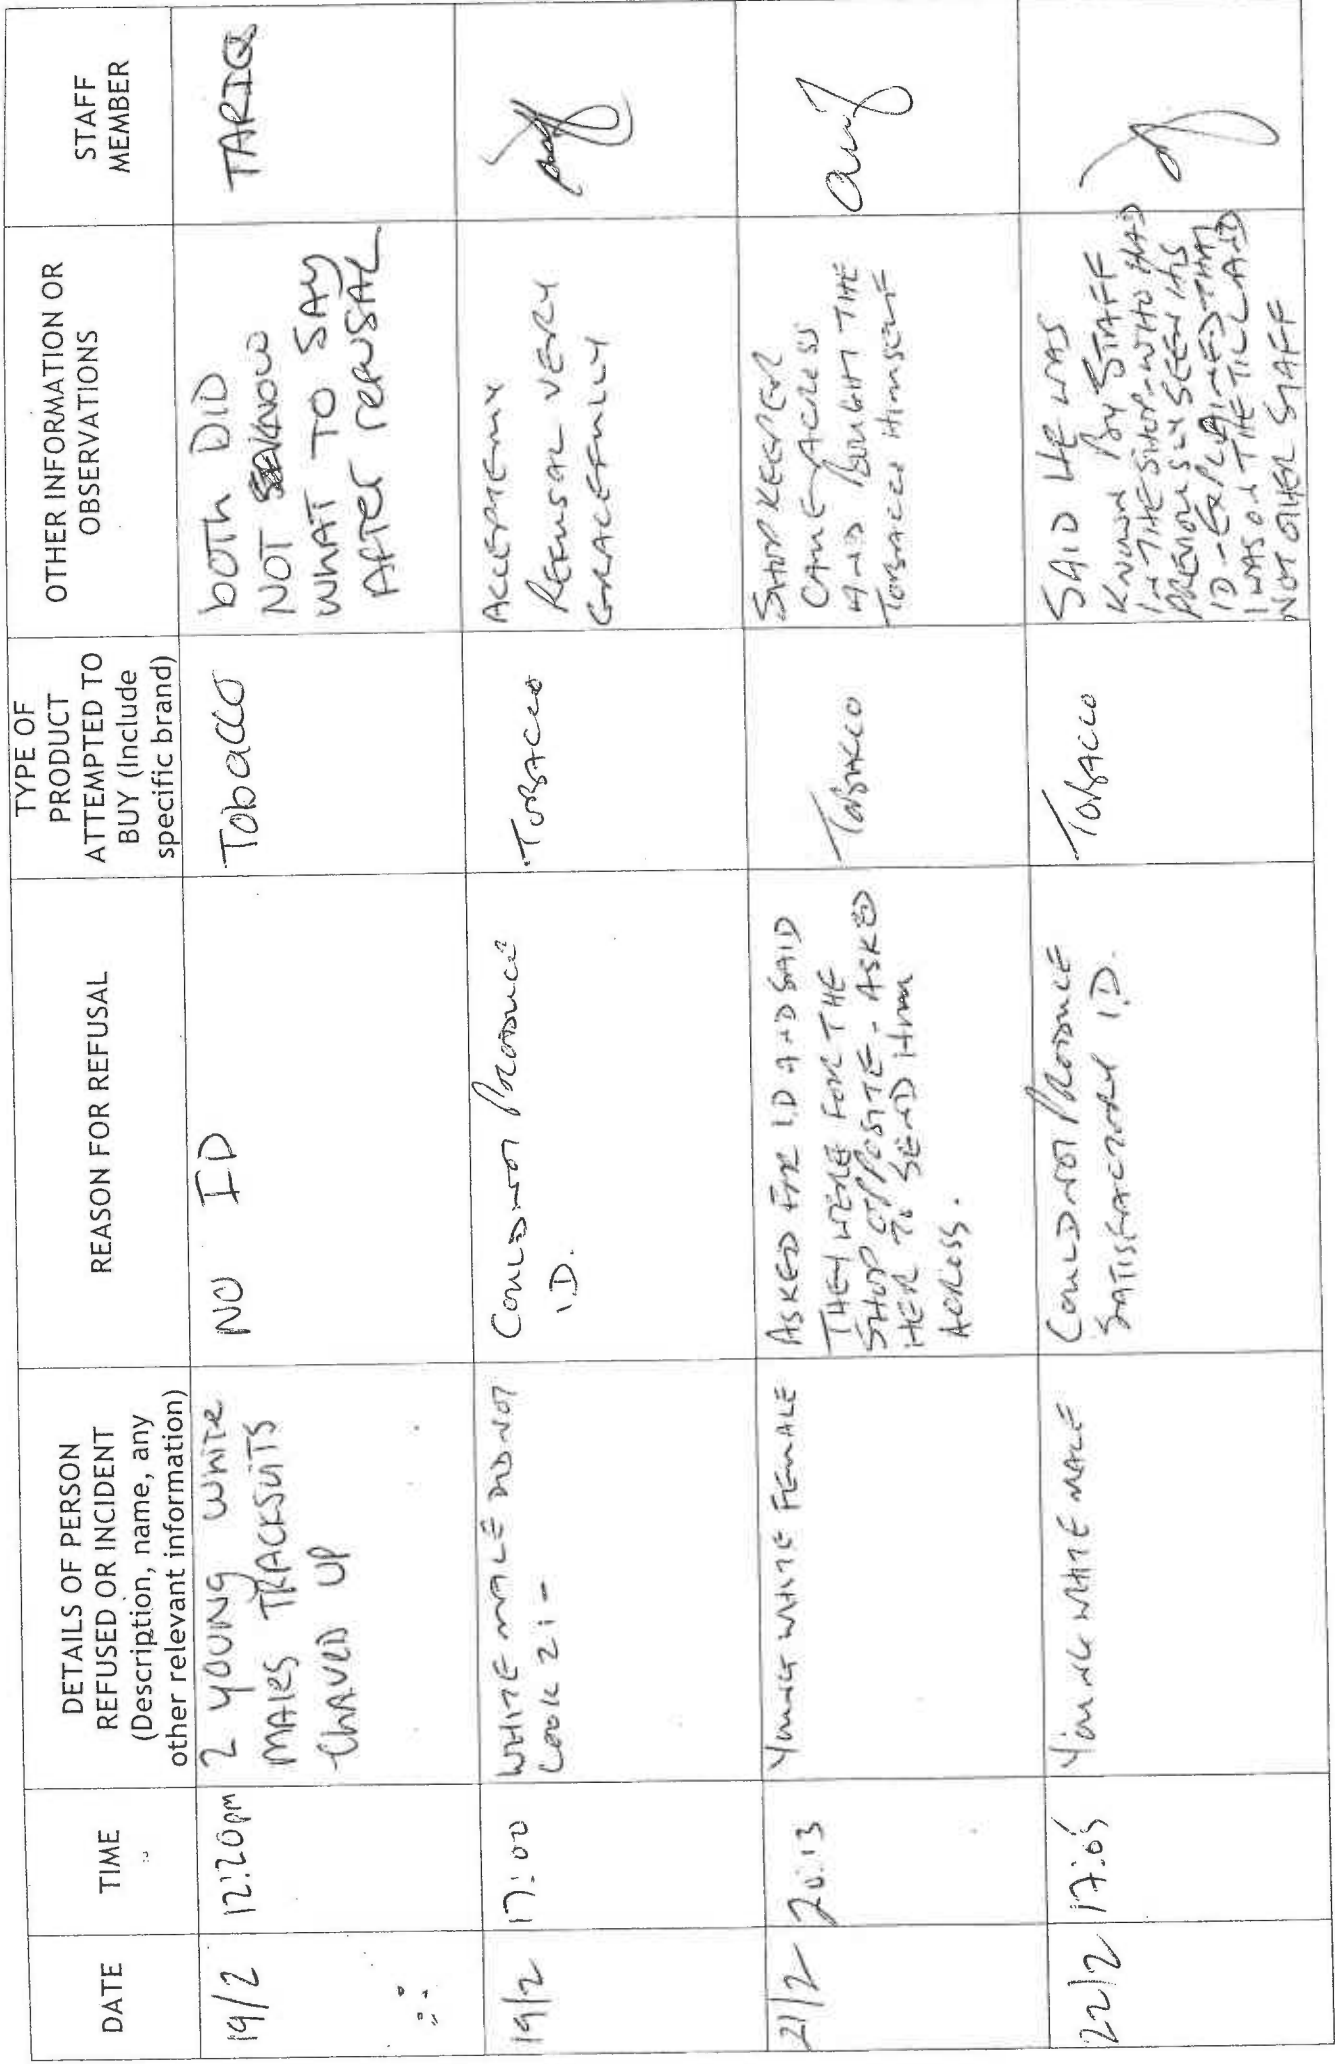 DATE
TIME
DETAILS OF PERSON
REFUSED OR INCIDENT
(Description, name, any
other relevant information)
REASON FOR REFUSAL
TYPE OF
PRODUCT
ATTEMPTED TO
BUY (Include
specific brand)
OTHER INFORMATION OR
OBSERVATIONS
STAFF
MEMBER
19/2
12:20pm
2 YOUNG White
MALES TRACKSUITS
ChAVED UP
NO ID
Tobacco
both DID
NOT KNOW
WHAT TO SAY
AFTER refusAL
TARIQ
19/2
17:00
WHITE MALE DID NOT
LOOK 21 -
COULD NOT PRODUCE
I.D.
TOBACCO
REFUSAL VERY
GRACEFULLY
21/2
20:13
YOUNG WHITE FEMALE
ASKED FOR I.D AND SAID
THEY WERE FOR THE
SHOP OPPOSITE - ASKED
HER TO SEND HIM
ACROSS.
TOBACCO
SHOP KEEPER
CAME ACROSS
AND BOUGHT THE
TOBACCO HIMSELF
22/2
17:05
YOUNG WHITE MALE
COULD NOT PRODUCE
SATISFACTORY I.D.
TOBACCO
SAID HE WAS
KNOWN BY STAFF
IN THE SHOP - WHO HAD
PREVIOUSLY SEEN HIS
ID - EXPLAINED THAT
I WAS ON THE TILL AND
NOT OTHER STAFF